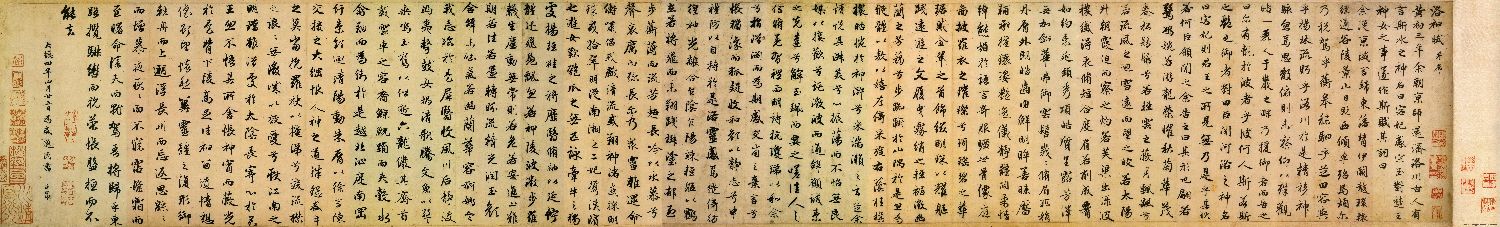 洛神賦 并序
黃初三年余朝京師還濟洛川古人有
言斯水之神名曰宓妃感宋玉對楚王
神女之事遂作斯賦其詞曰
余從京域言歸東藩背伊闕越轘轅
經通谷陵景山日既西傾車殆馬煩爾
乃稅駕乎蘅皋秣駟乎芝田容與
乎楊林流眄乎洛川於是精移神
駭忽焉思散俯則未察仰以殊觀
睹一美人于巖之畔乃援御者而告之
曰爾有覿於彼者乎彼何人斯若斯
之豔也御者對曰臣聞河洛之神名
曰宓妃則君王之所見無乃是乎其狀
若何臣願聞之余告之曰其形也翩若
驚鴻婉若游龍榮曜秋菊華茂
春松髣髴兮若輕雲之蔽月飄颻兮
若流風之迴雪遠而望之皎若太陽
升朝霞迫而察之灼若芙蕖出淥波
襛纖得中脩短合度肩若削成腰
如約素延頸秀項皓質呈露芳澤
無加鉛華弗御雲髻峨峨脩眉聯娟
丹脣外朗皓齒內鮮明眸善睞靨
輔承權瓌姿豔逸儀靜體閑柔情
綽態媚於語言奇服曠世骨像應
圖披羅衣之璀粲兮珥瑤碧之華
琚戴金翠之首飾綴明珠以耀軀
踐遠遊之文履曳霧綃之輕裾微幽
蘭之芳藹兮步踟躕於山隅於是忽焉
縱體以遨以嬉左倚采旄右蔭桂旗
攘皓腕於神滸兮采湍瀨之玄芝余
情悅其淑美兮心振蕩而不怡無良
媒以接歡兮託微波而通辭願誠素
之先達兮解玉珮而要之嗟佳人之
信脩羌習禮而明詩抗瓊珶以和余
兮指潛淵而為期感交甫之棄言兮
悵猶豫而狐疑收和顏以靜志兮申
禮防以自持於是洛靈感焉徙倚彷
徨神光離合乍陰乍陽竦輕軀以鶴
立若將飛而未翔踐椒塗之郁烈
步蘅薄而流芳超長吟以永慕兮
聲哀厲而彌長爾乃眾靈雜遝命
儔嘯侶或戲清流或翔神渚或採明
珠或拾翠羽從南湘之二妃攜漢濱
之遊女歎匏瓜之無匹詠牽牛之獨
處揚輕袿之猗靡翳脩袖以延佇
體迅飛鳧飄忽若神陵波微步羅
襪生塵動無常則若危若安進止難
期若往若還轉眄流精光潤玉顏
含辭未吐氣若幽蘭華容婀娜令
我忘飡於是屏翳收風川后靜波
馮夷擊鼓女媧清歌騰文魚以警
乘鳴玉鸞以偕逝六龍儼其齊首
載雲車之容裔鯨鯢踴而夾轂水
禽翔而為衛於是越北沚度南岡
紆素領迴清揚動朱脣以徐言陳
交接之大綱恨人神之道殊怨盛年
之莫當抗羅袂以掩涕兮淚流襟
之浪浪悼良會之永絕兮哀一逝而異鄉
無微情以效愛兮獻江南之
明璫雖潛處於太陰長寄心於君
王忽不悟其所舍悵神宵而蔽光
於是背下陵高足往神留遺情想
像顧望懷愁冀靈體之復形御
輕舟而上遡浮長川而忘返思綿綿
而增慕夜耿耿而不寐霑繁霜而
至曙命僕夫而就駕吾將歸乎東
路攬騑轡而抗策悵盤桓而不
能去
大德四年四月廿五日為盛逸民書 子昂